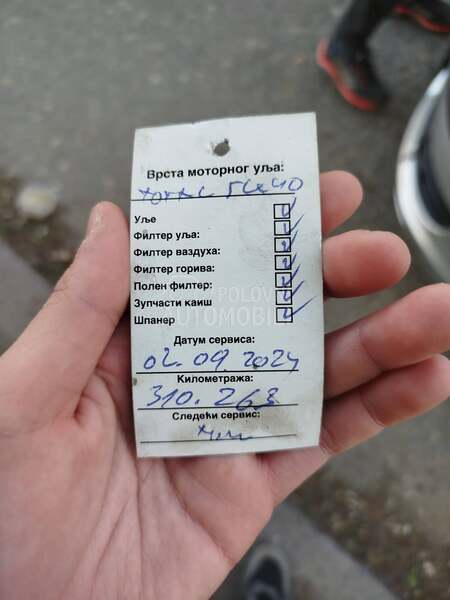 Врста моторног уља:
TOTAL 5W40
Уље
Филтер уља:
Филтер ваздуха:
Филтер горива:
Полен филтер:
Зупчасти каиш
Шпанер
POLOVNI
AUTOMOBILI
Датум сервиса:
02.09.2024
Километража:
310.263
Следећи сервис: